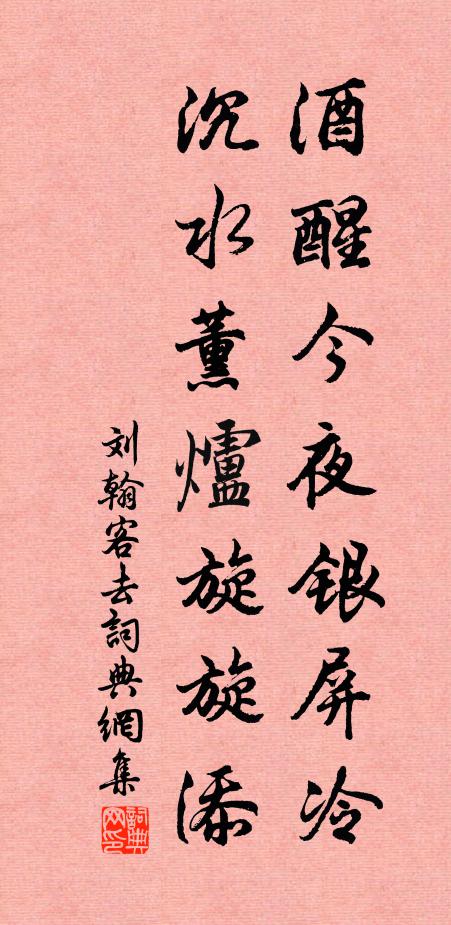 酒醒今夜银屏冷
沉水薰爐旋旋添
刘翰客去詞典網集
詞典网印